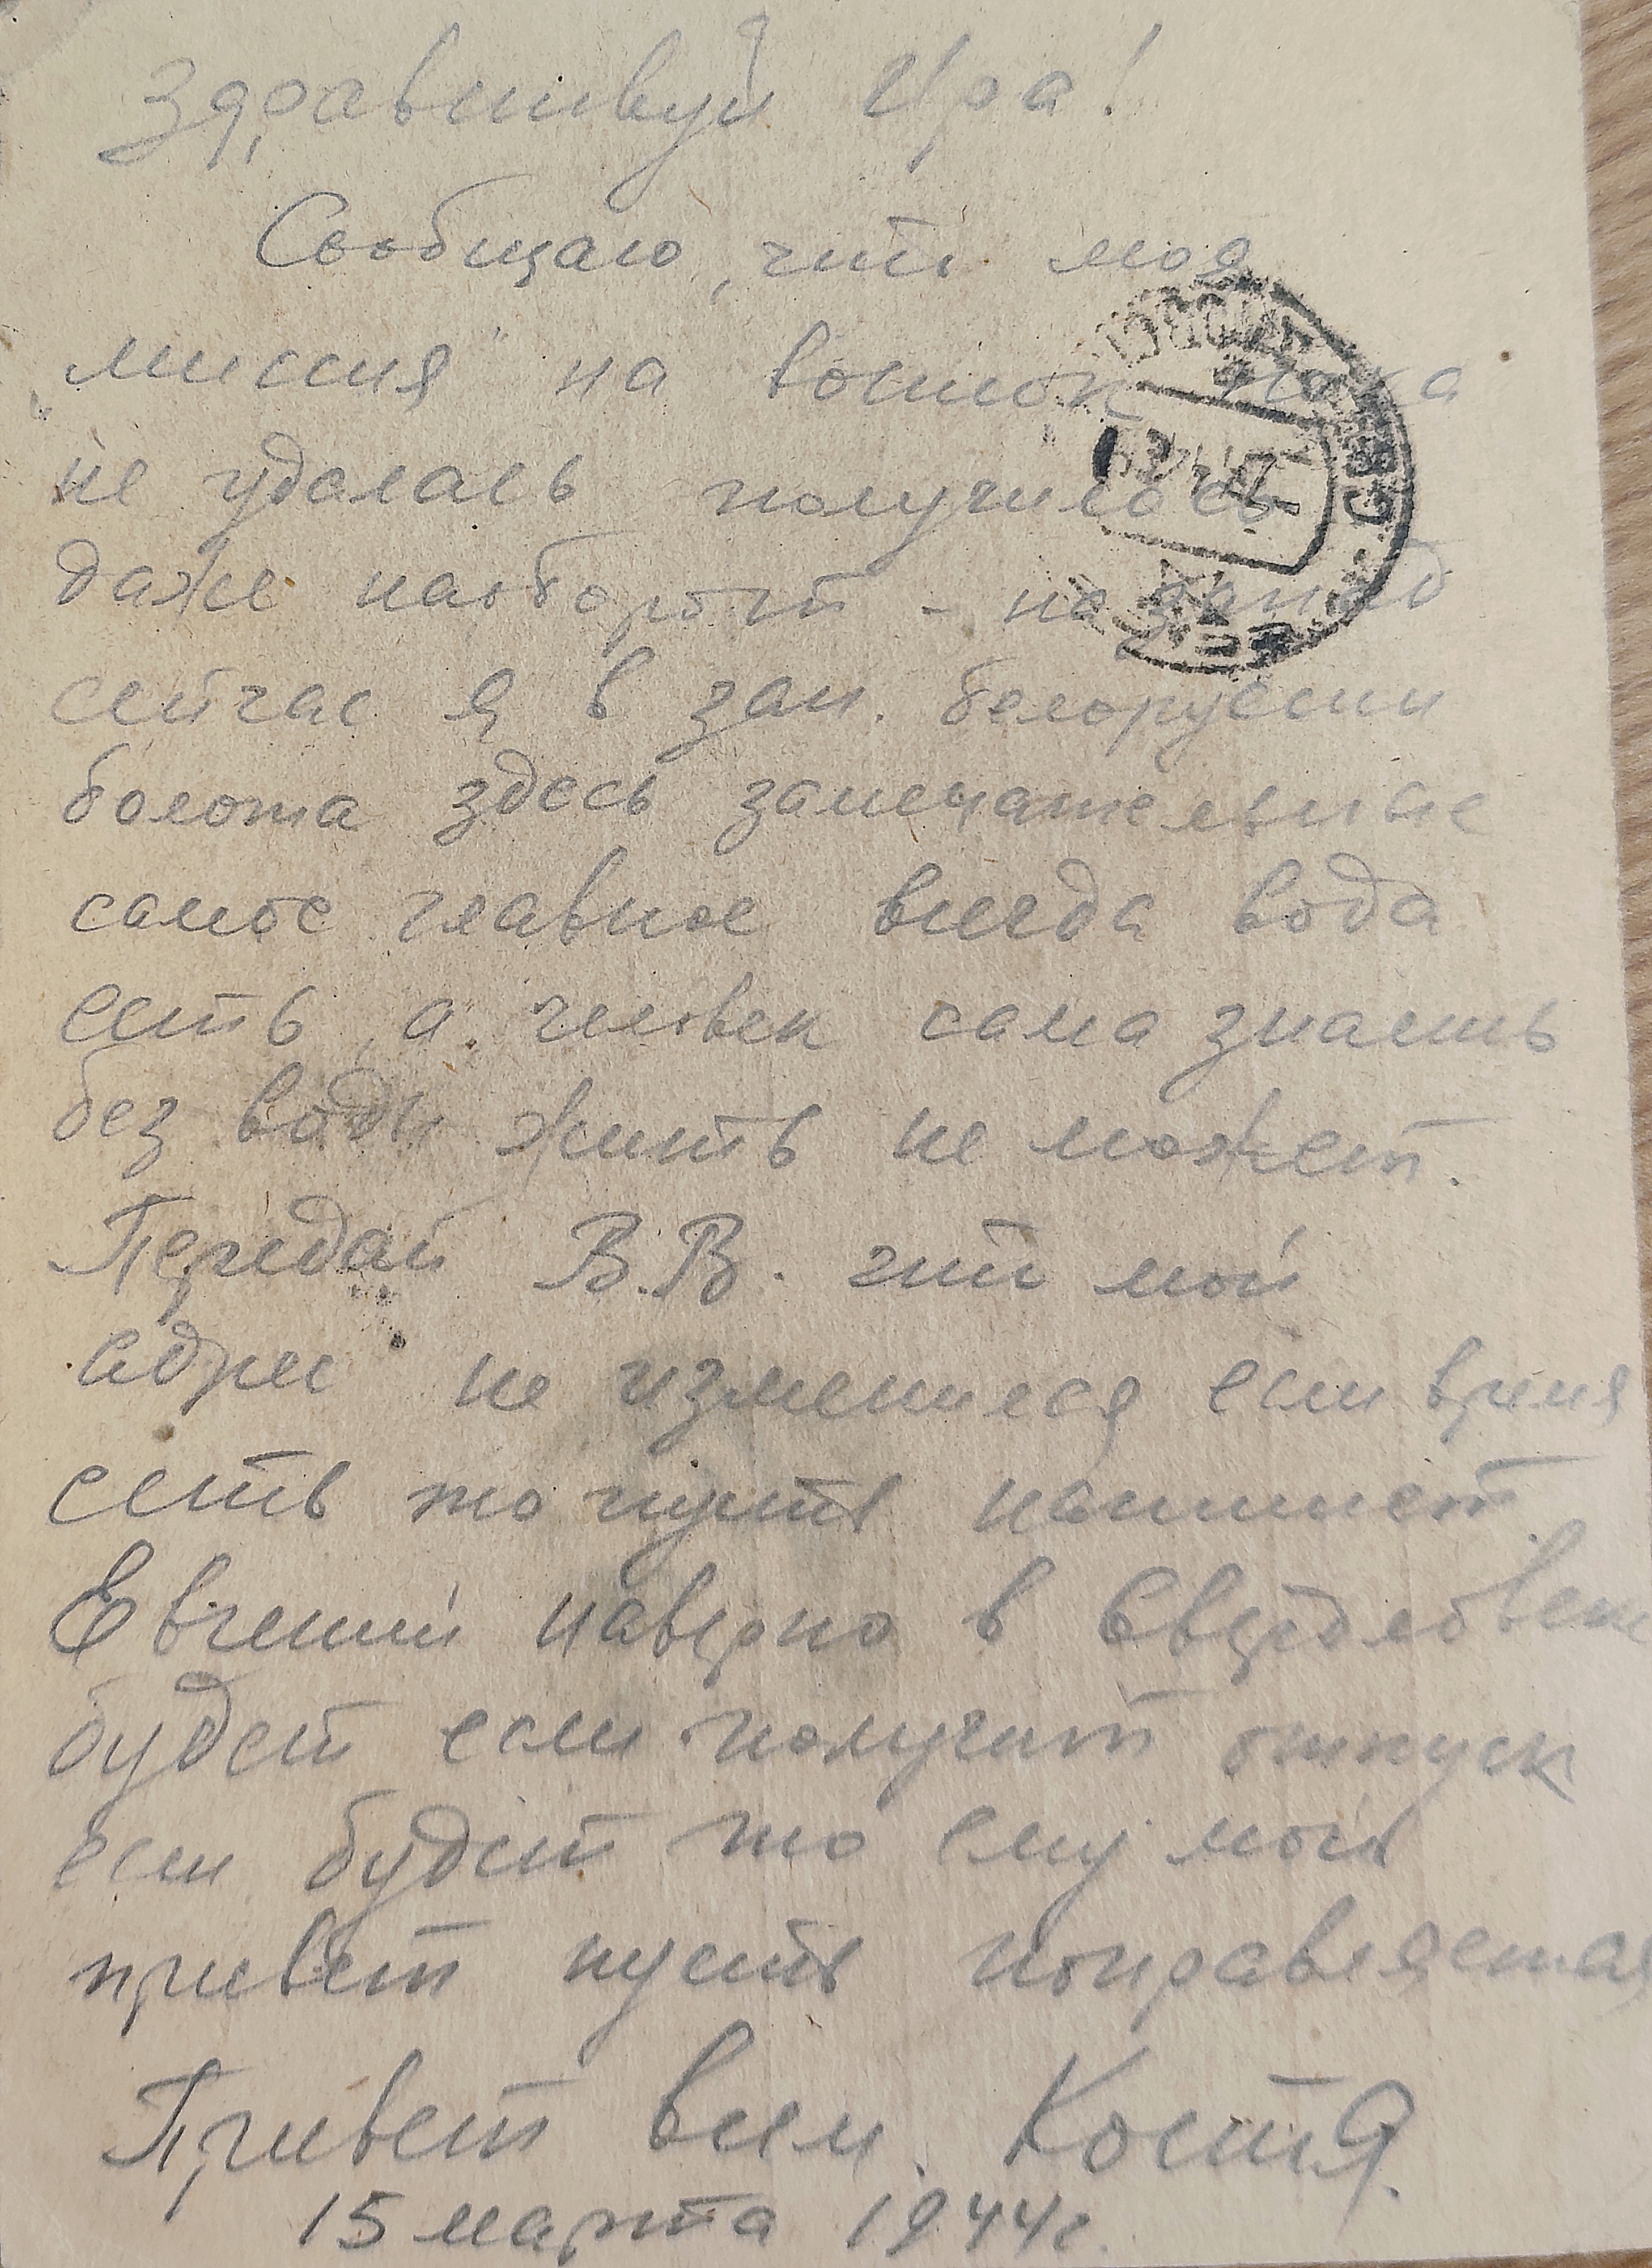 Здравствуй Ира!
Сообщаю, что моя
„миссия" на восток пока
не удалась получилось
даже наоборот - на запад
сейчас я в зап. белоруссии
болота здесь замечательные
самое главное всегда вода
есть, а человек сама знаешь
без воды жить не может.
Передай В.В. что мой
адрес не изменился если время
есть то пусть напишет.
Евгений наверно в Свердловске
будет если получит отпуск
если будет то ему мой
привет пусть поправляется
Привет всем. Костя.
15 марта 1944г.